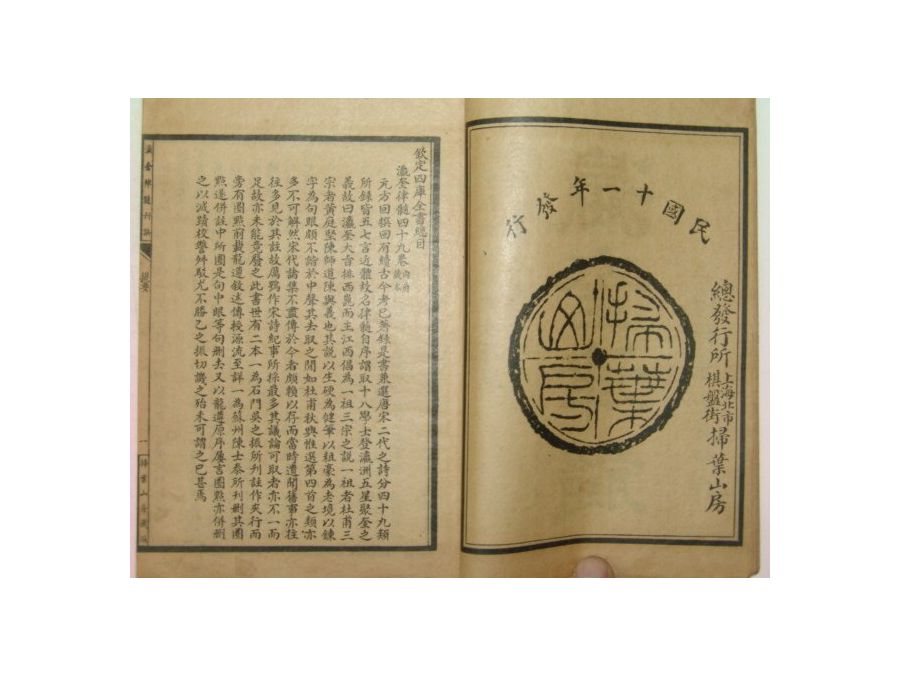 民國十一年發行
掃葉山房
總發行所 上海北市棋盤街 掃葉山房
欽定四庫全書總目
瀛奎律髓四十九卷 內府藏本
元方回撰回有續古今考已著錄是書兼選唐宋二代之詩分四十九類
所錄皆五七言近體故名律髓自序謂取十八學士登瀛洲五星聚奎之
義故曰瀛奎大旨排西崑而主江西倡為一祖三宗之說一祖者杜甫三
宗者黃庭堅陳師道陳與義也其說以生硬為健筆以粗豪為老境以鍊
字為句眼頗不諧於中聲其去取之間如杜甫秋興惟選第四首之類亦
多不可解然宋代諸集不盡傳於今者頗賴以存而當時遺聞舊事亦往
往多見於其註故厲鶚作宋詩紀事所採最多其議論可取者亦不一而
足故亦未能竟廢之此書世有二本一為石門吳之振所刊註作夾行而
旁有圈點前載龍遵敘述傳授源流至詳一為蘇州陳士泰所刊刪其圈
點遂併註中所圈是句中眼等句刪去又以龍遵原序屢言圈點亦併刪
之以滅蹟校讐舛駁尤不勝乙之振切譏之殆未可謂之已甚焉
提要
一
掃葉山房藏版